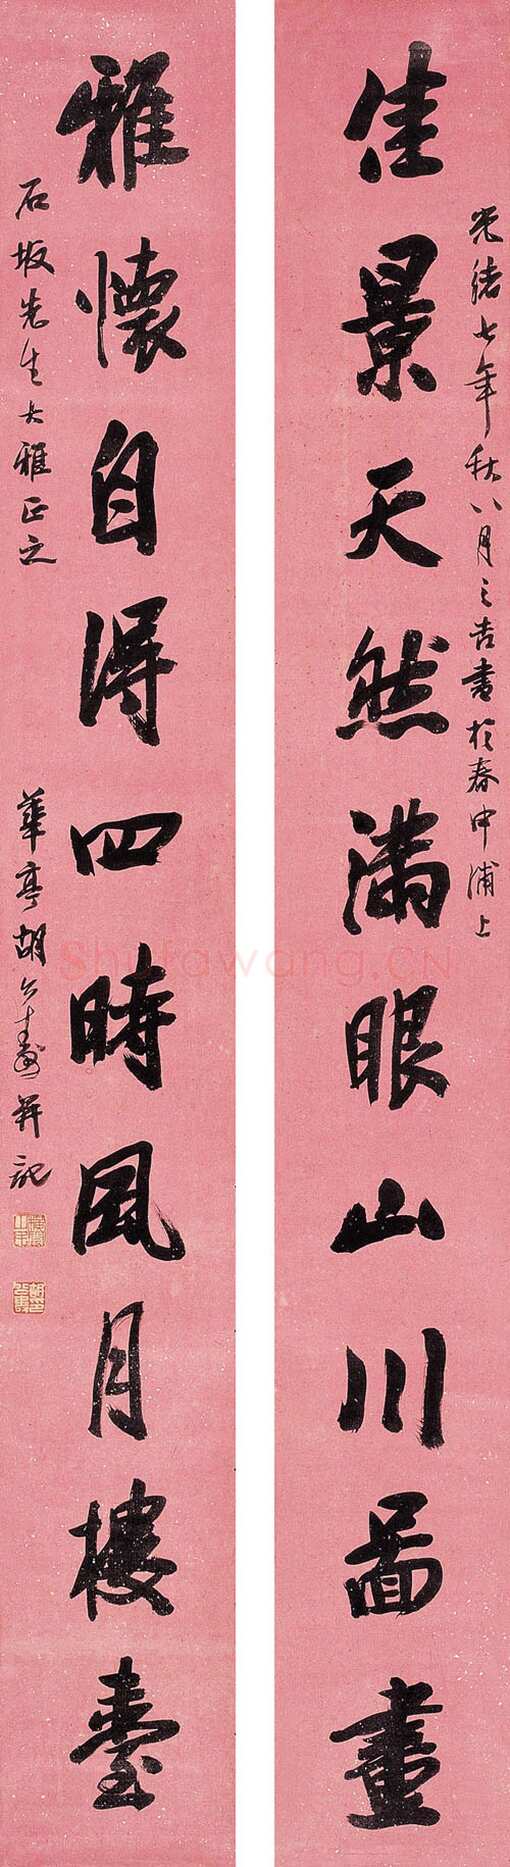 光緒七年秋八月之吉書於春申浦上
佳景天然滿眼山川圖畫
雅懷自得四時風月樓臺
石坂先生大雅正之
華亭胡公壽畫并記
Shufawang.CN